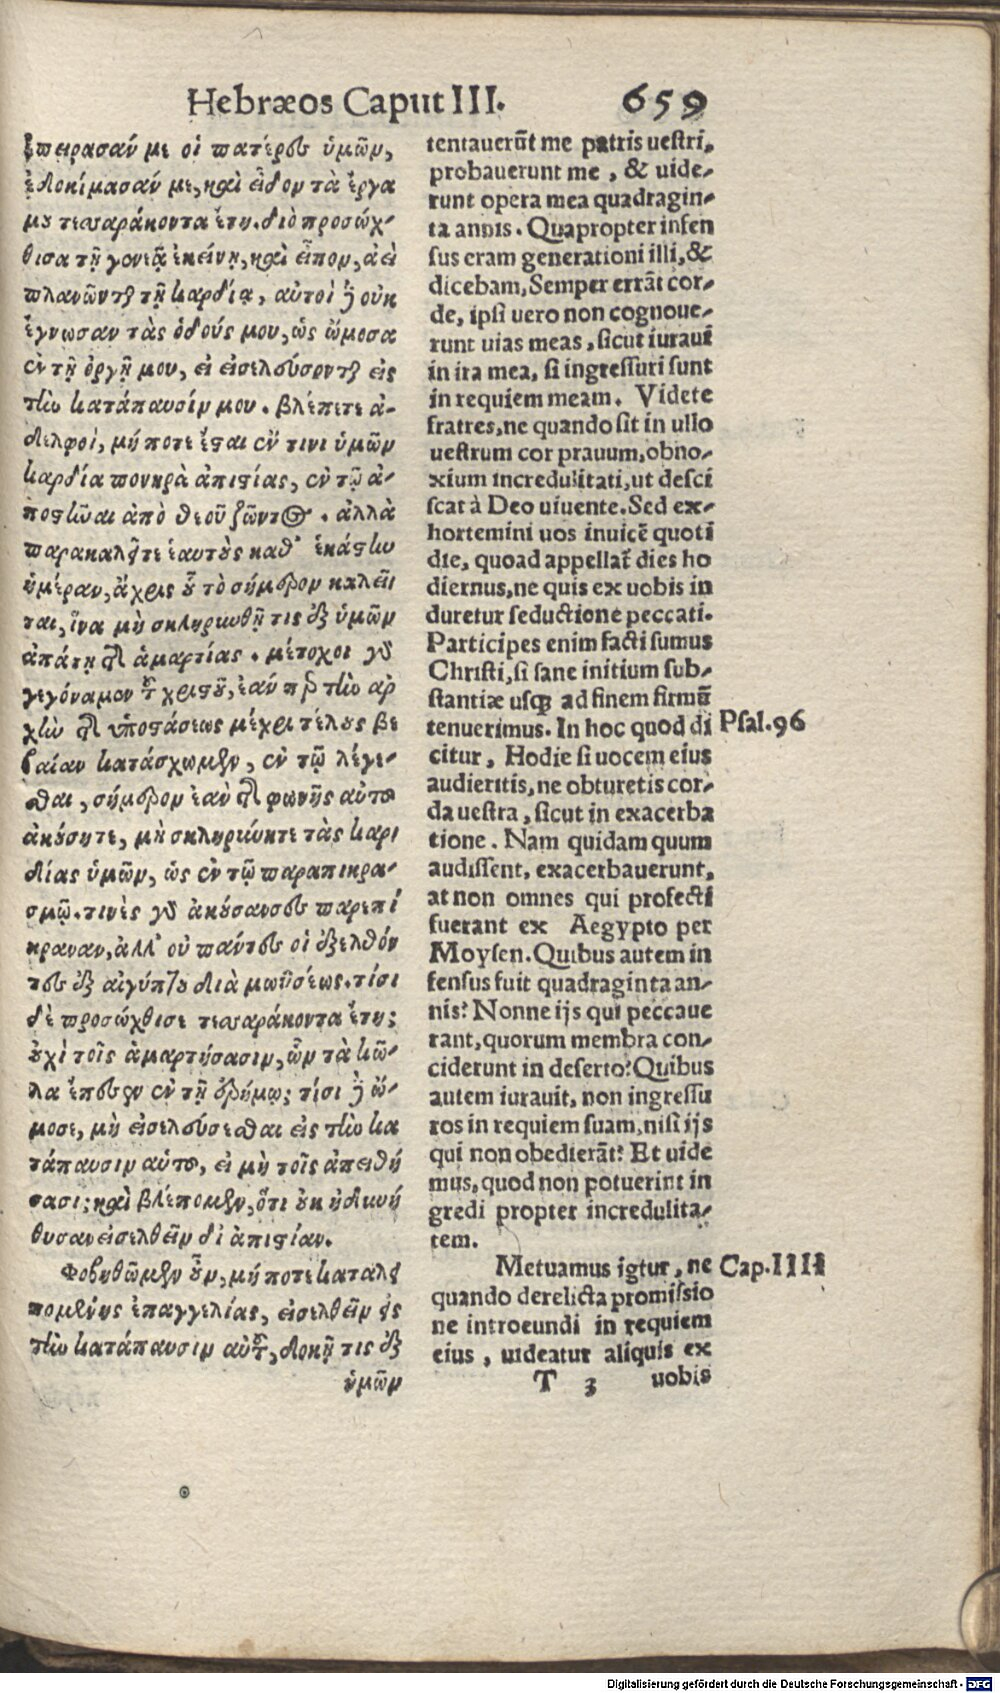 Hebræos Caput III. 659
ἐπείρασάν με οἱ πατέρες ὑμῶν,
ἐδοκίμασάν με, καὶ εἶδον τὰ ἔργα
μου τεσσαράκοντα ἔτη. διὸ προσώχ-
θισα τῇ γενεᾷ ἐκείνῃ, καὶ εἶπον, ἀεὶ
πλανῶνται τῇ καρδίᾳ, αὐτοὶ δὲ οὐκ
ἔγνωσαν τὰς ὁδούς μου, ὡς ὤμοσα
ἐν τῇ ὀργῇ μου, εἰ εἰσελεύσονται εἰς
τὴν κατάπαυσίν μου. βλέπετε ἀ-
δελφοὶ, μή ποτε ἔσται ἐν τινι ὑμῶν
καρδία πονηρὰ ἀπιστίας, ἐν τῷ ἀ-
ποστῆναι ἀπὸ θεοῦ ζῶντος. ἀλλὰ
παρακαλεῖτε ἑαυτοὺς καθ' ἑκάστην
ἡμέραν, ἄχρις οὗ τὸ σήμερον καλεῖ
ται, ἵνα μὴ σκληρυνθῇ τις ἐξ ὑμῶν
ἀπάτῃ τῆς ἁμαρτίας. μέτοχοι γὰρ
γεγόναμεν τοῦ χριστοῦ, ἐάν περ τὴν ἀρ
χὴν τῆς ὑποστάσεως μέχρι τέλους βε
βαίαν κατάσχωμεν, ἐν τῷ λέγε-
σθαι, σήμερον ἐὰν τῆς φωνῆς αὐτοῦ
ἀκούσητε, μὴ σκληρύνητε τὰς καρ
δίας ὑμῶν, ὡς ἐν τῷ παραπικρα-
σμῷ. τινὲς γὰρ ἀκούσαντες παρεπί
κραναν, ἀλλ' οὐ πάντες οἱ ἐξελθόν
τες ἐξ αἰγύπτου διὰ μωϋσέως. τίσι
δὲ προσώχθισε τεσσαράκοντα ἔτη;
οὐχὶ τοῖς ἁμαρτήσασιν, ὧν τὰ κῶ-
λα ἔπεσεν ἐν τῇ ἐρήμῳ; τίσι δὲ ὤ-
μοσε, μὴ εἰσελεύσεσθαι εἰς τὴν κα
τάπαυσιν αὐτοῦ, εἰ μὴ τοῖς ἀπειθή
σασι; καὶ βλέπομεν, ὅτι οὐκ ἠδυνή
θησαν εἰσελθεῖν δι' ἀπιστίαν.
Φοβηθῶμεν οὖν, μή ποτε καταλει
πομένης ἐπαγγελίας, εἰσελθεῖν εἰς
τὴν κατάπαυσιν αὐτοῦ, δοκῇ τις ἐξ
ὑμῶν
tentauerūt me patris uestri,
probauerunt me, & uide-
runt opera mea quadragin-
ta annis. Quapropter infen
sus eram generationi illi, &
dicebam, Semper errāt cor-
de, ipsi uero non cognoue-
runt uias meas, sicut iurauī
in ira mea, si ingressuri sunt
in requiem meam. Videte
fratres, ne quando sit in ullo
uestrum cor prauum, obno-
xium incredulitati, ut desci
scat à Deo uiuente. Sed ex-
hortemini uos inuicē quoti
die, quoad appellat̄ dies ho
diernus, ne quis ex uobis in
duretur seductione peccati.
Participes enim facti sumus
Christi, si sane initium sub-
stantiæ usq; ad finem firmū
tenuerimus. In hoc quod di
citur, Hodie si uocem eius
audieritis, ne obturetis cor-
da uestra, sicut in exacerba
tione. Nam quidam quum
audissent, exacerbauerunt,
at non omnes qui profecti
fuerant ex Aegypto per
Moysen. Quibus autem in
fensus fuit quadraginta an-
nis? Nonne ijs qui peccaue
rant, quorum membra con-
ciderunt in deserto? Quibus
autem iurauit, non ingressu
ros in requiem suam, nisi ijs
qui non obedierāt? Et uide
mus, quod non potuerint in
gredi propter incredulita-
tem.
Metuamus igtur, ne
quando derelicta promissio
ne introeundi in requiem
eius, uideatur aliquis ex
T 3 uobis
Psal.96
Cap.IIII
Digitalisierung gefördert durch die Deutsche Forschungsgemeinschaft - DFG